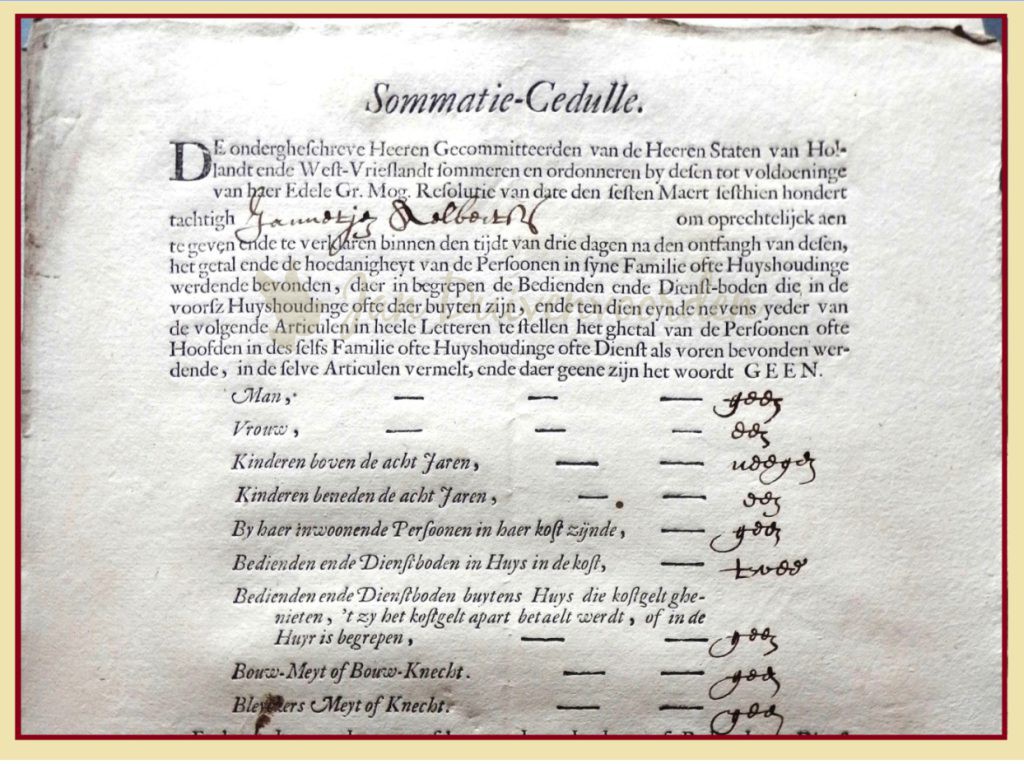 Sommatie-Cedulle.
DE ondergheſchreve Heeren Gecommitteerden van de Heeren Staten van Hol-
landt ende Weſt-Vrieſlandt ſommeren en ordonneren by deſen tot voldoeninge
van haer Edele Gr. Mog. Reſolutie van date den ſeſten Maert ſeſthien hondert
tachtigh Jannetje om oprechtelijck aen
te geven ende te verklaren binnen den tijdt van drie dagen na den ontfangh van deſen,
het getal ende de hoedanigheyt van de Perſoonen in ſyne Familie ofte Huyshoudinge
werdende bevonden, daer in begrepen de Bedienden ende Dienſt-boden die in de
voorſz Huyshoudinge ofte daer buyten zijn, ende ten dien eynde nevens yeder van
de volgende Articulen in heele Letteren te ſtellen het ghetal van de Perſoonen ofte
Hoofden in des ſelfs Familie ofte Huyshoudinge ofte Dienſt als voren bevonden wer-
dende, in de ſelve Articulen vermelt, ende daer geene zijn het woordt GEEN.
Man, — — — geen
Vrouw, — — — een
Kinderen boven de acht Jaren, — —
Kinderen beneden de acht Jaren, — — een
By haer inwoonende Perſoonen in haer koſt zijnde, — geen
Bedienden ende Dienſtboden in Huys in de koſt, — twee
Bedienden ende Dienſtboden buytens Huys die koſtgelt ghe-
nieten, 't zy het koſtgelt apart betaelt werdt, of in de
Huyr is begrepen, — — geen
Bouw-Meyt of Bouw-Knecht. — — geen
Bleyckers Meyt of Knecht. — — geen